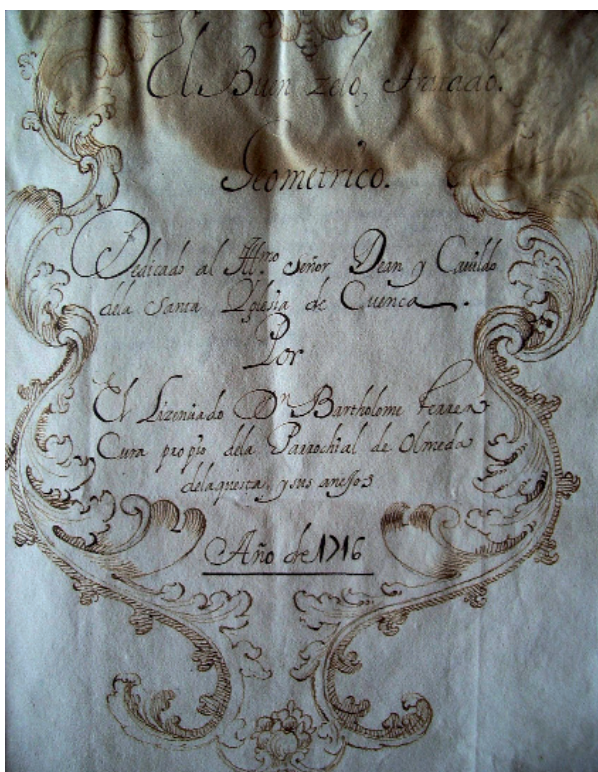 El Buen zelo, tratado.
Geometrico.
Dedicado al Ill.mo señor Dean y Cavildo
dela Santa Yglesia de Cuenca.
Por
El Lizenciado Dn Bartholome Ferrer
Cura propio dela Parrochial de Olmeda
delaquesta, y sus anejos
Año de 1716